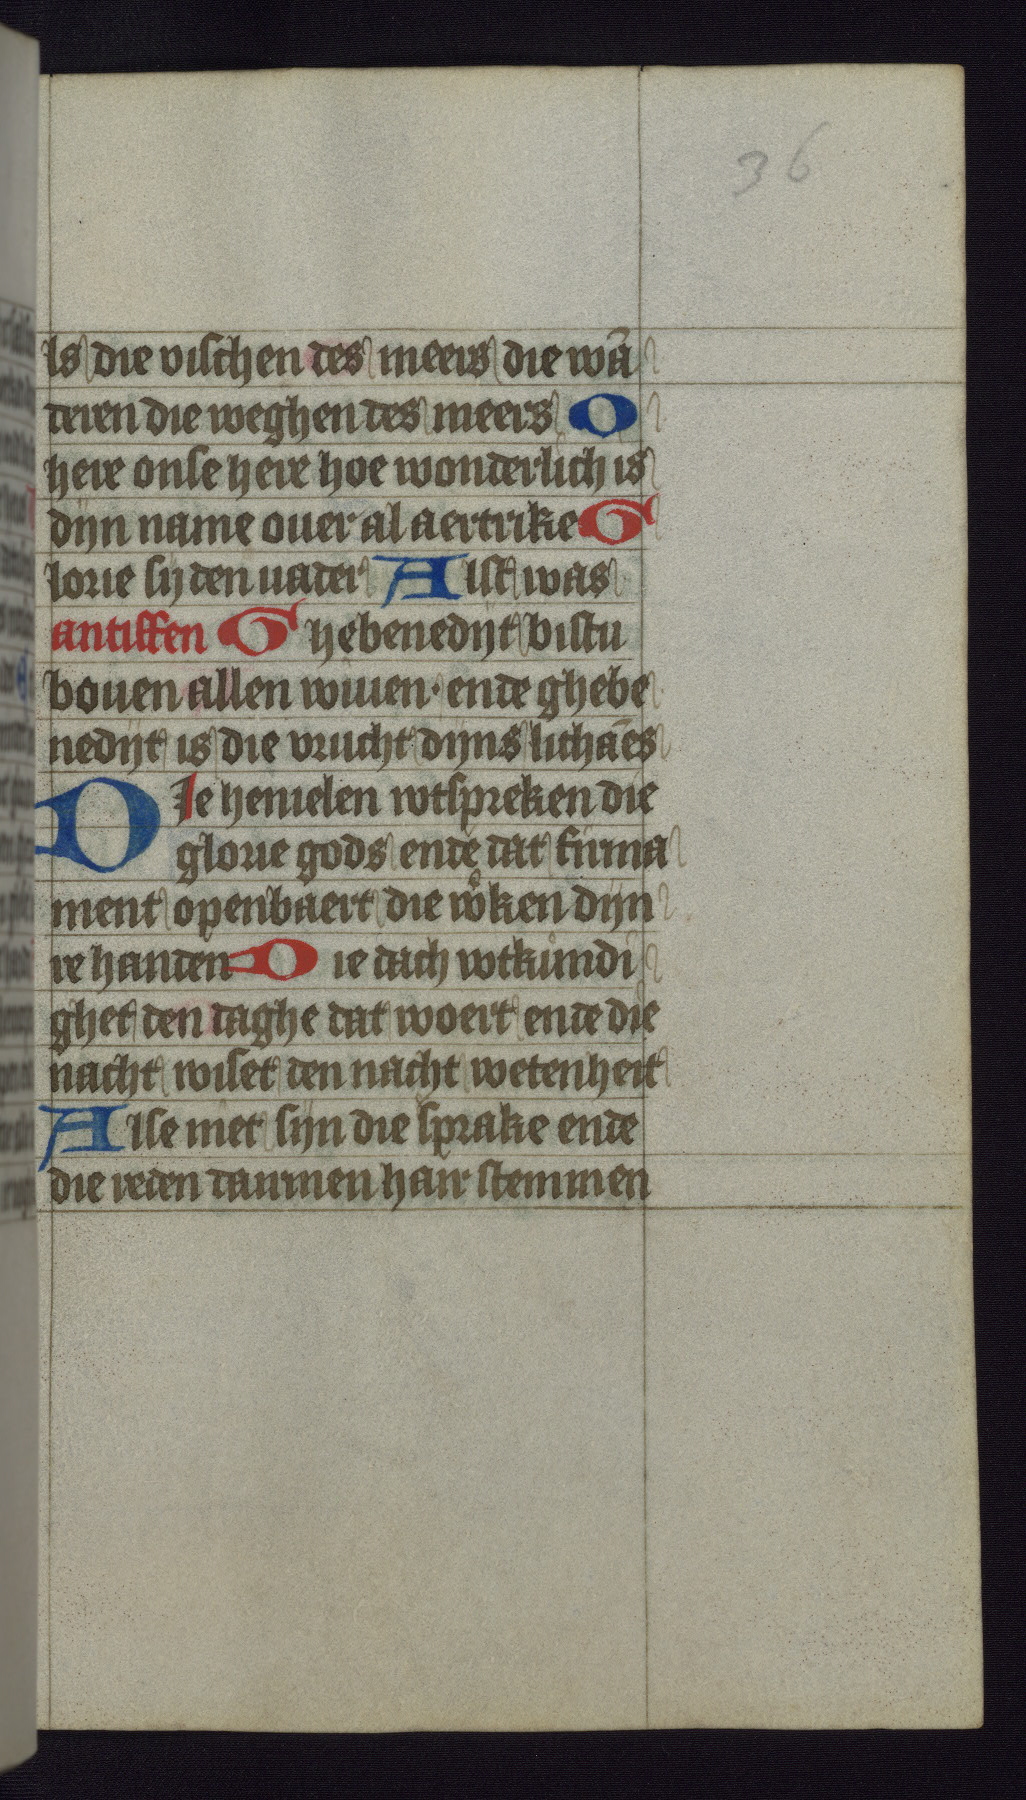 36
ls die visschen des meers die wā
deren die weghen des meers O
here onse here hoe wonderlich is
dijn name ouer al aertrike G
lorie sy den vader Alst was
antiffen Ghebenedijt bistu
bouen allen wiuen· ende ghebe
nedijt is die vrucht dijns lichāes
DIe hemelen wtspreken die
glorie gods ende dat firma
ment openbaert die wͦken dijn
re handen Die dach wtkundi
ghet den daghe dat woert ende die
nacht wiset den nacht wetenheit
Alse niet sijn die sprake ende
die reden dairmen hair stemmen